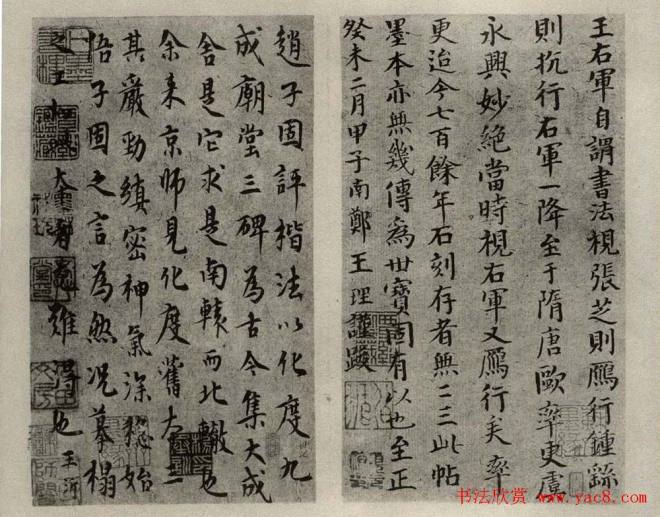 王右軍自謂書法視張芝則鴈行鍾繇
則抗行右軍一降至于隋唐歐率更虞
永興妙絕當時視右軍又鴈行矣率
更迨今七百餘年石刻存者無一二三此帖
墨本亦無幾傳為世寶固有以也至正
癸未二月甲子南鄭王理謹跋
趙子固評楷法以化度九
成廟堂三碑為古今集大成
舍是它求是南轅而北轍也
余来京師見化度舊本二
其嚴勁縝密神氣深穩始
悟子固之言為然况摹榻
之工
大
者尤難得也王沂
书法欣赏 www.yac8.com